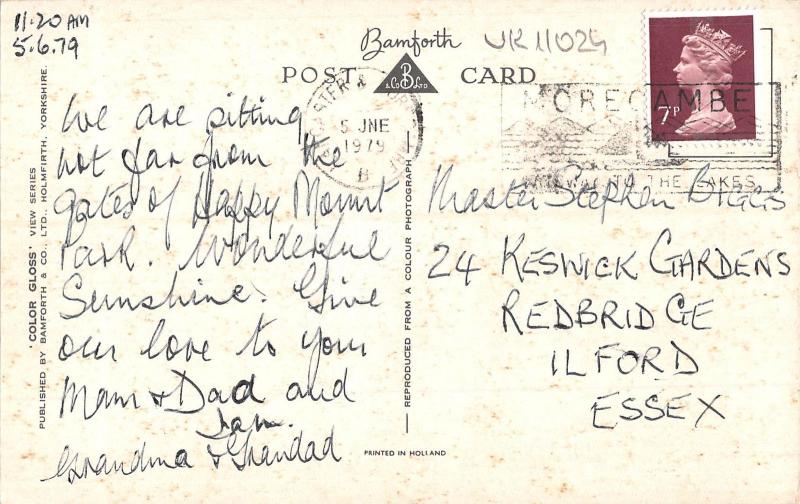 11.20 AM
5.6.79
Bamforth
UK 11024
POST CARD
B
& CO LTD
We are sitting
not far from the
gates of Happy Mount
Park. Wonderful
Sunshine. Give
our love to your
Mam & Dad and
Grandma & Grandad
5 JNE
1979
B
MORECAMBE
TO THE LAKES
7P
Master Stephen Biggs
24 KESWICK GARDENS
REDBRIDGE
ILFORD
ESSEX
'COLOR GLOSS' VIEW SERIES
PUBLISHED BY BAMFORTH & CO., LTD., HOLMFIRTH, YORKSHIRE.
REPRODUCED FROM A COLOUR PHOTOGRAPH
PRINTED IN HOLLAND